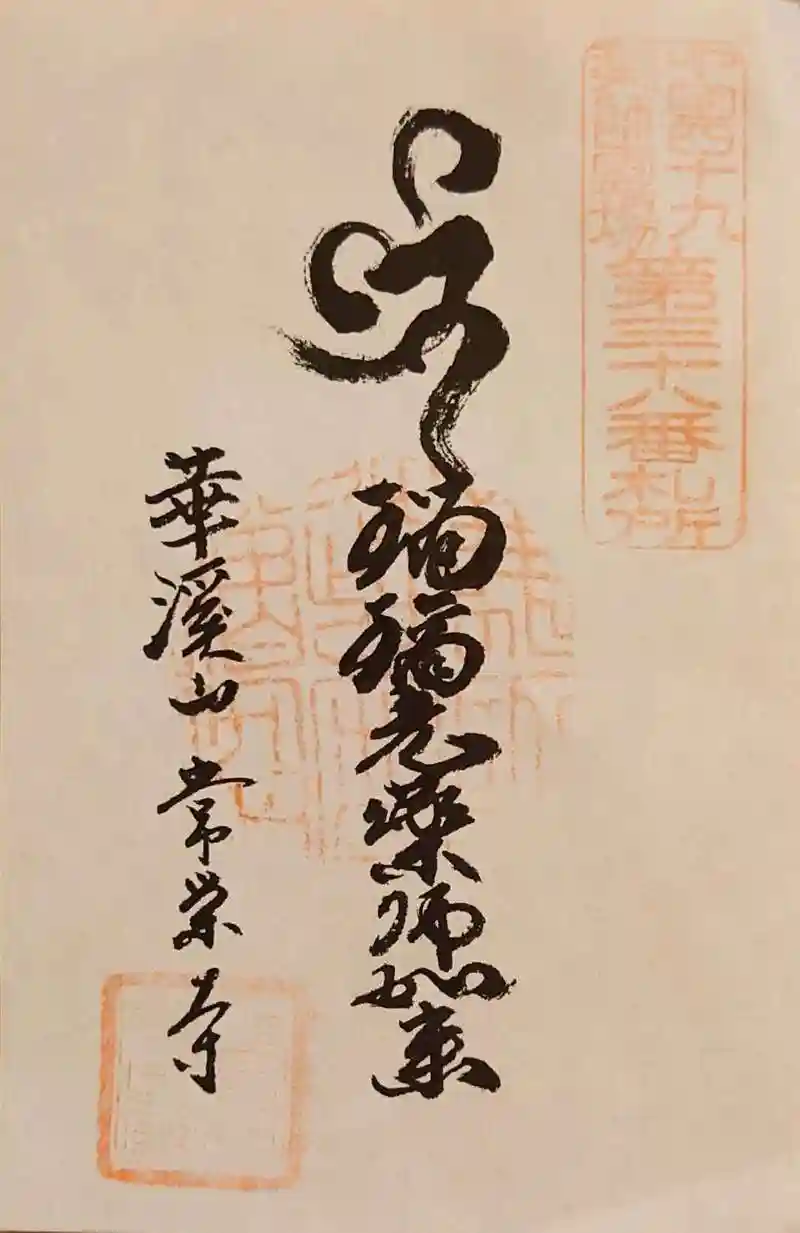 中国四十九
薬師霊場
第三十八番札所
瑠璃光薬師如来
華溪山 常栄寺